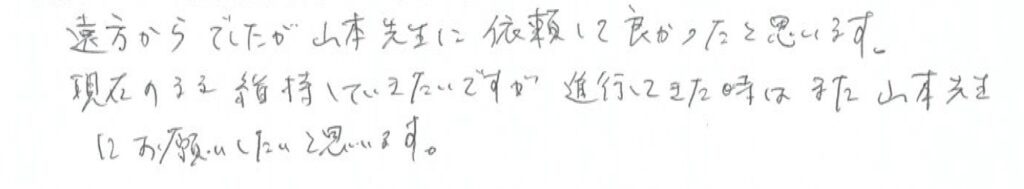 遠方からでしたが山本先生に依頼して良かったと思います。
現在のまま維持していきたいですが 進行してきた時はまた山本先生
にお願いしたいと思います。